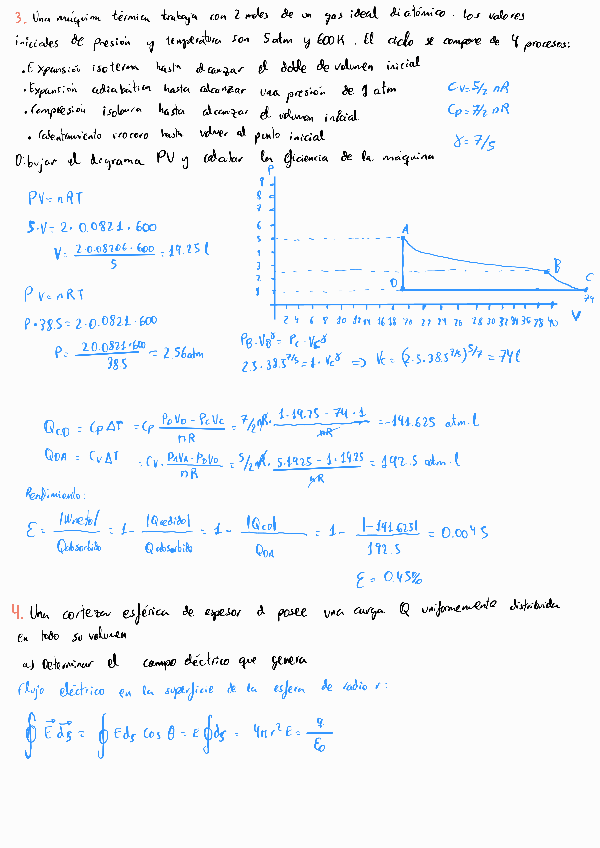 3. Una máquina térmica trabaja con 2 moles de un gas ideal diatómico. Los valores
iniciales de presión y temperatura son 5 atm y 600 K. El ciclo se compone de 4 procesos:
• Expansión isoterma hasta alcanzar el doble de volumen inicial
• Expansión adiabática hasta alcanzar una presión de 1 atm
Cv = 5/2 nR
• Compresión isobara hasta alcanzar el volumen inicial
Cp = 7/2 nR
• Calentamiento isocoro hasta volver al punto inicial
γ = 7/5
Dibujar el diagrama PV y calcular la eficiencia de la máquina
PV = nRT
5·V = 2·0.0821·600
V = 2·0.08206·600 / 5 = 19.25 l
PV = nRT
P·38.5 = 2·0.0821·600
P = 2·0.0821·600 / 38.5 = 2.56 atm
P
9
8
7
6
5
4
3
2
1
A
B
C
D
2 4 6 8 10 12 14 16 18 20 22 24 26 28 30 32 34 36 38 40
74
V
P_B·V_B^γ = P_C·V_C^γ
2.5·38.5^7/5 = 1·V_C^γ => V_C = (2.5·38.5^7/5)^5/7 = 74 l
Q_CD = Cp ΔT = Cp (P_D V_D - P_C V_C) / nR = 7/2 nR · (1·19.25 - 74·1) / nR = -191.625 atm·l
Q_DA = Cv ΔT = Cv · (P_A V_A - P_D V_D) / nR = 5/2 nR · (5·19.25 - 1·19.25) / nR = 192.5 atm·l
Rendimiento:
ε = |W neto| / Q absorbido = 1 - |Q cedido| / Q absorbido = 1 - |Q_CD| / Q_DA = 1 - |-191.625| / 192.5 = 0.0045
ε = 0.45%
4. Una corteza esférica de espesor d posee una carga Q uniformemente distribuida
en todo su volumen
a) Determinar el campo eléctrico que genera
Flujo eléctrico en la superficie de la esfera de radio r:
∮ E⃗ d⃗s = ∮ E ds cos θ = E ∮ ds = 4π r² E = q / ε₀